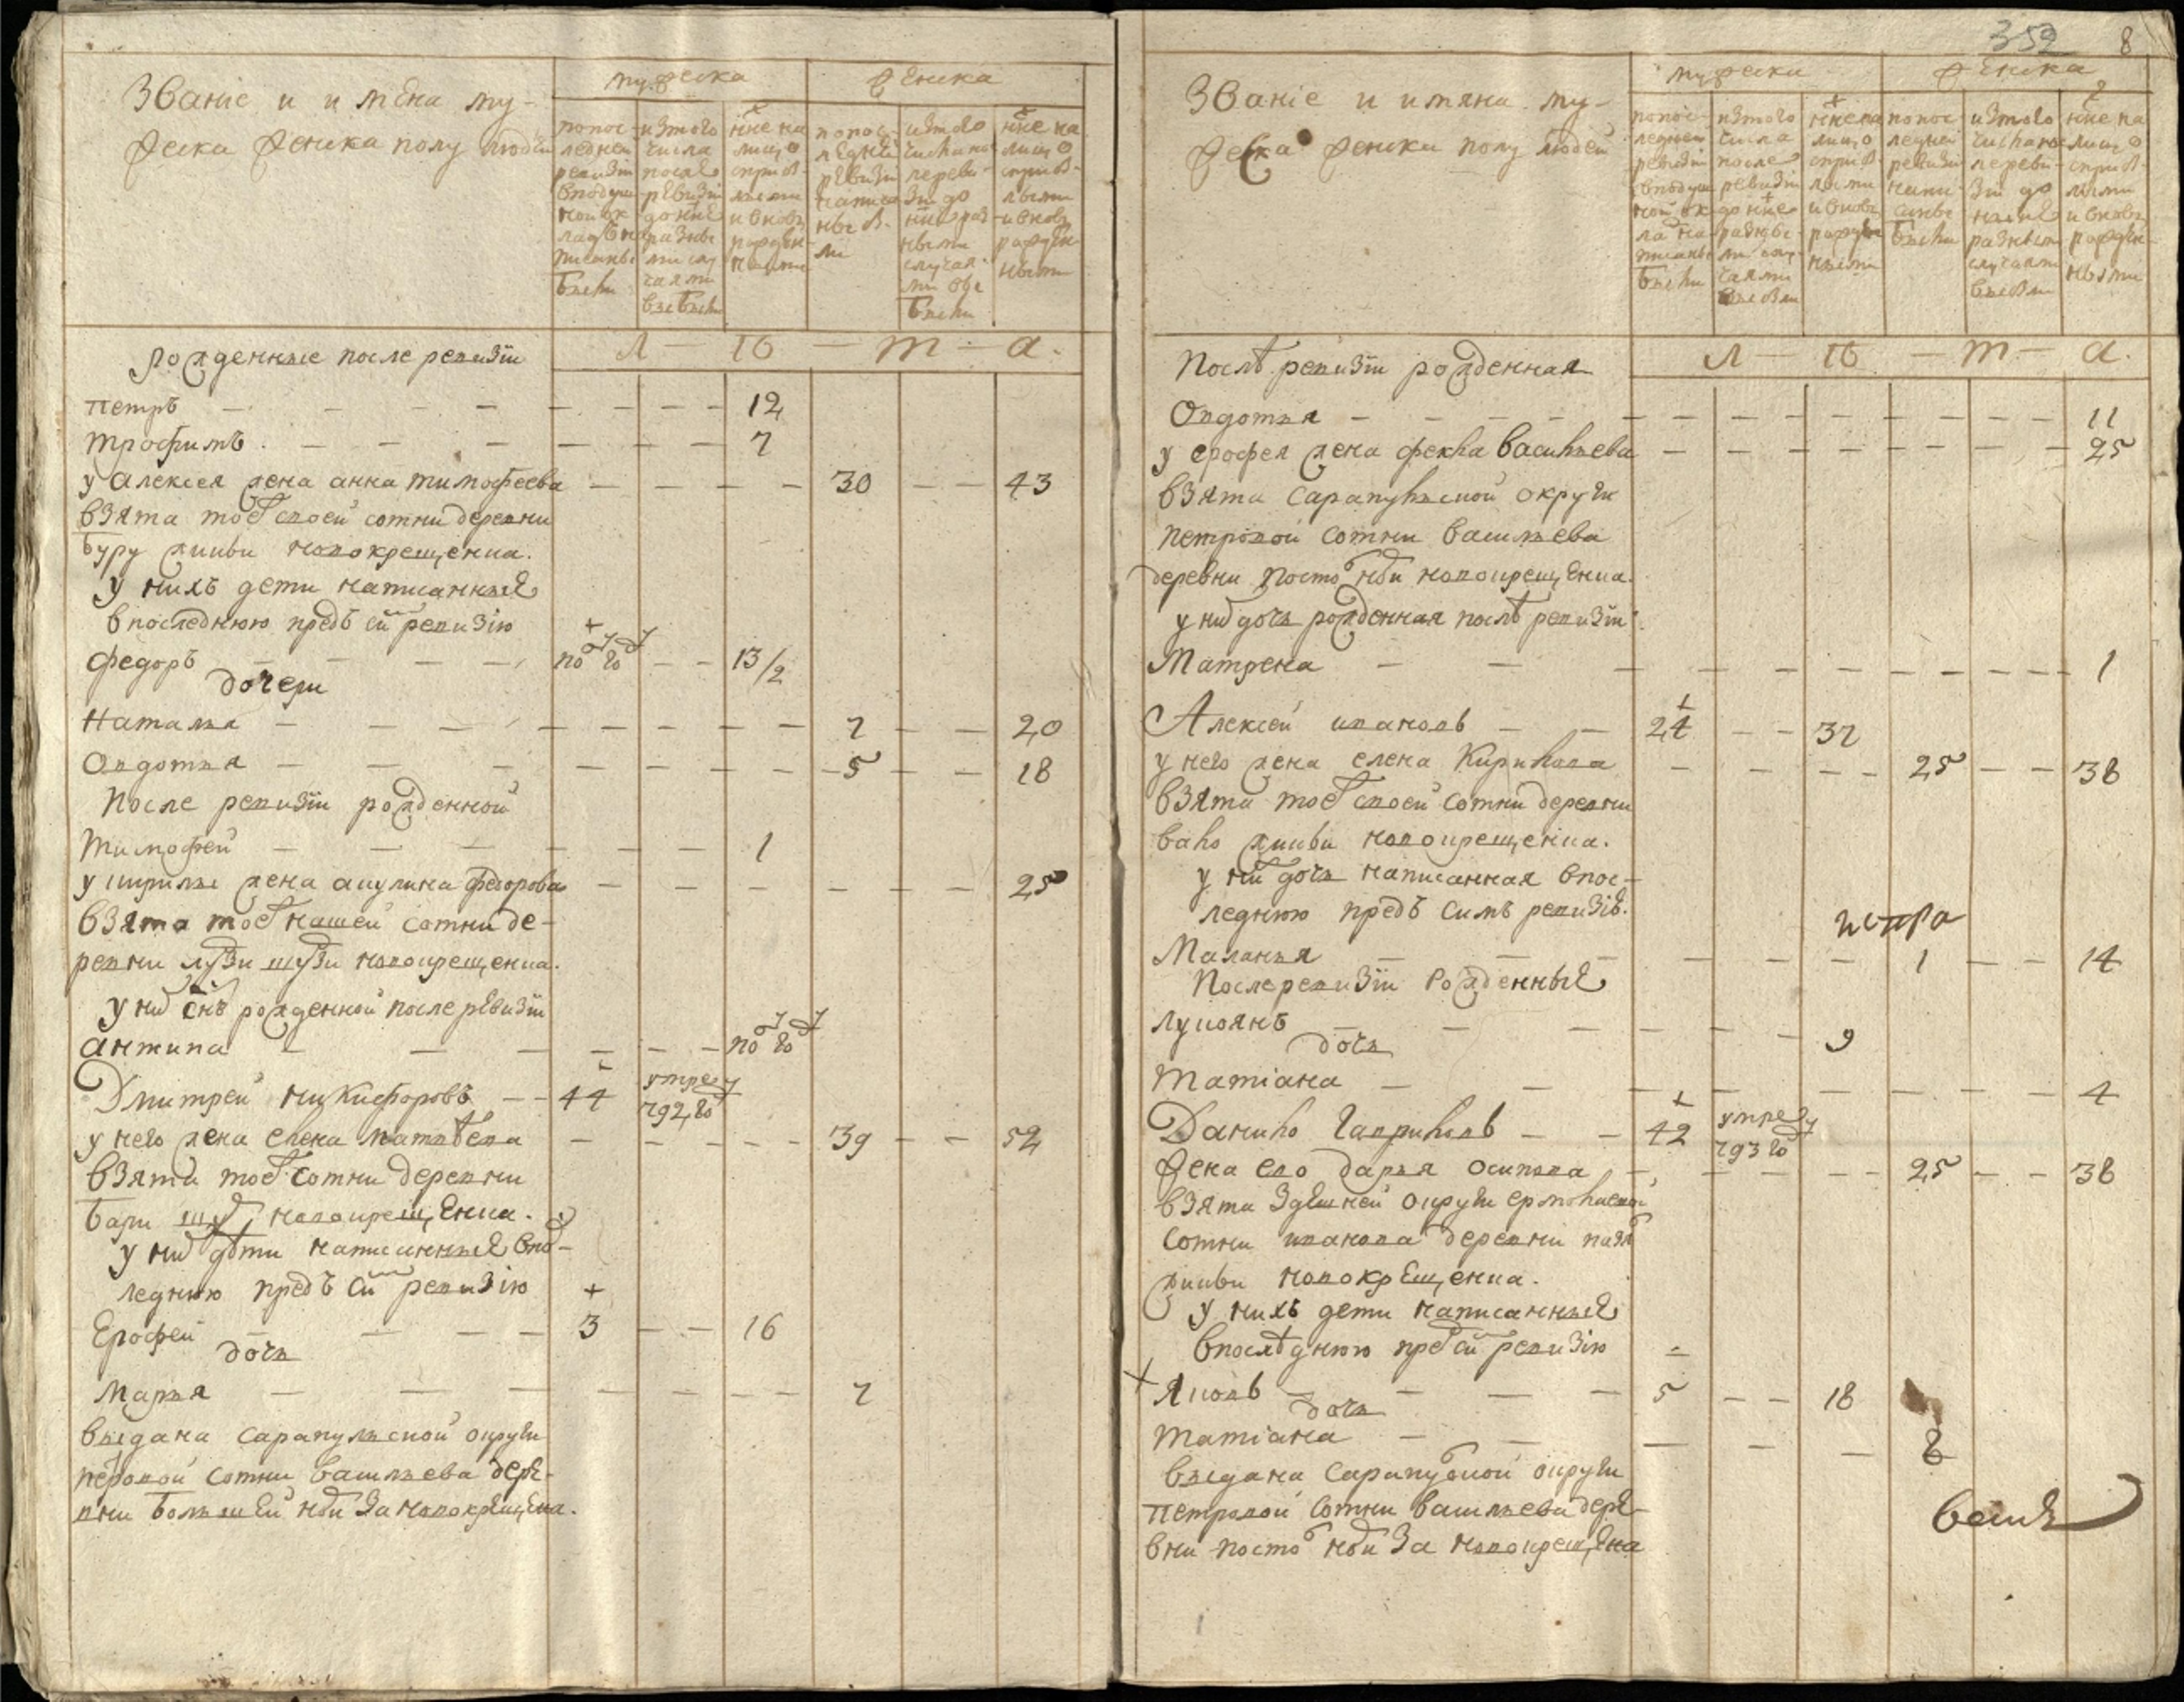 Званіе и имѣна му-
жеска женска полу людей
мужеска
женска
по пос-
ледней
ревизіи
в подуш-
ной ок
ладъ на
писаны
были
из того
числа
после
ревизіи
до нне
разны
ми слу
чаями
выбыли
нне на
лицо
с прибы-
лыми
и вновь
рожден-
ными
по пос-
ледней
ревизіи
написа
ны бы-
ли
из того
числа по
ле реви-
зіи до
нне раз-
ными
случая-
ми вы
были
нне на
лицо
с прибы-
лыми
и вновь
рожден-
ными
л — ѣ — т — а.
рожденные после ревизіи
петръ — 12
трофимъ — 7
у алексея жена анна тимофеева — 30 — 43
взята тое своей сотни деревни
буру жикьи новокрещенка.
у нихъ дети написанные
в последнюю предъ сим ревизію
федоръ — 13/2
дочери
Наталья — 7 — 20
Овдотья — 5 — 18
После ревизіи рожденной
тимофей — 1
у кирилы жена акулина федорова — 25
взята тое нашей сотни де-
ревни лузи шузи новокрещенка.
у них снъ рожденной после ревизіи
антипа
Дмитрей никифоровъ — 44 умре в 792 го
у него жена елена матвѣева — 39 — 52
взята тое сотни деревни
новокрещенка.
у них дѣти написанные в пос-
леднюю предъ сим ревизію
Ерофей — 3 — 16
дочь
Марья — 7
выдана сарапульской округи
петровой сотни васильева дере-
вни большей нби за новокрещена.
359 8
Званіе и имяна му-
жеска женска полу людей
мужеска
женска
по пос-
ледней
ревизіи
в подуш
ной ок
лад на
писаны
были
из того
числа
после
ревизіи
до нне
разны-
ми слу-
чаями
выбыли
нне на
лицо
с прибы-
лыми
и вновь
рожден
ными
по пос
ледней
ревизіи
напи-
саны
были
из того
числа по
ле реви-
зіи до
ныне
разными
случаями
выбыли
нне на
лицо
с прибы-
лыми
и вновь
рожден-
ными
л — ѣ — т — а.
Послѣ ревизіи рожденная
Овдотья — 11
у ерофея жена фекла васильева — 25
взята сарапульской округи
петровой сотни васильева
деревни посто нби новокрещенка.
у них дочь рожденная послѣ ревизіи
Матрена — 1
Алексей ивановъ — 24 — 37
у него жена елена кирилова — 25 — 38
взята тое своей сотни деревни
вало жикьи новокрещенка.
у них дочь написанная в пос-
леднюю предъ симъ ревизіѣ.
Маланья — 1 — 14
После ревизіи рожденные
лукоянъ — 9
дочь
татіана — 4
Данило гавриловъ — 42 умре в 793 го
жена ево дарья осипова — 25 — 38
взята здешней округи ермольской
сотни иванова деревни
жикьи новокрещенка.
у нихъ дети написанные
в послѣднюю пред сим ревизію
Яковъ — 5 — 18
дочь
татіана — 8
выдана сарапульской округи
петровой сотни васильева дере-
вни посто нби за новокрещена